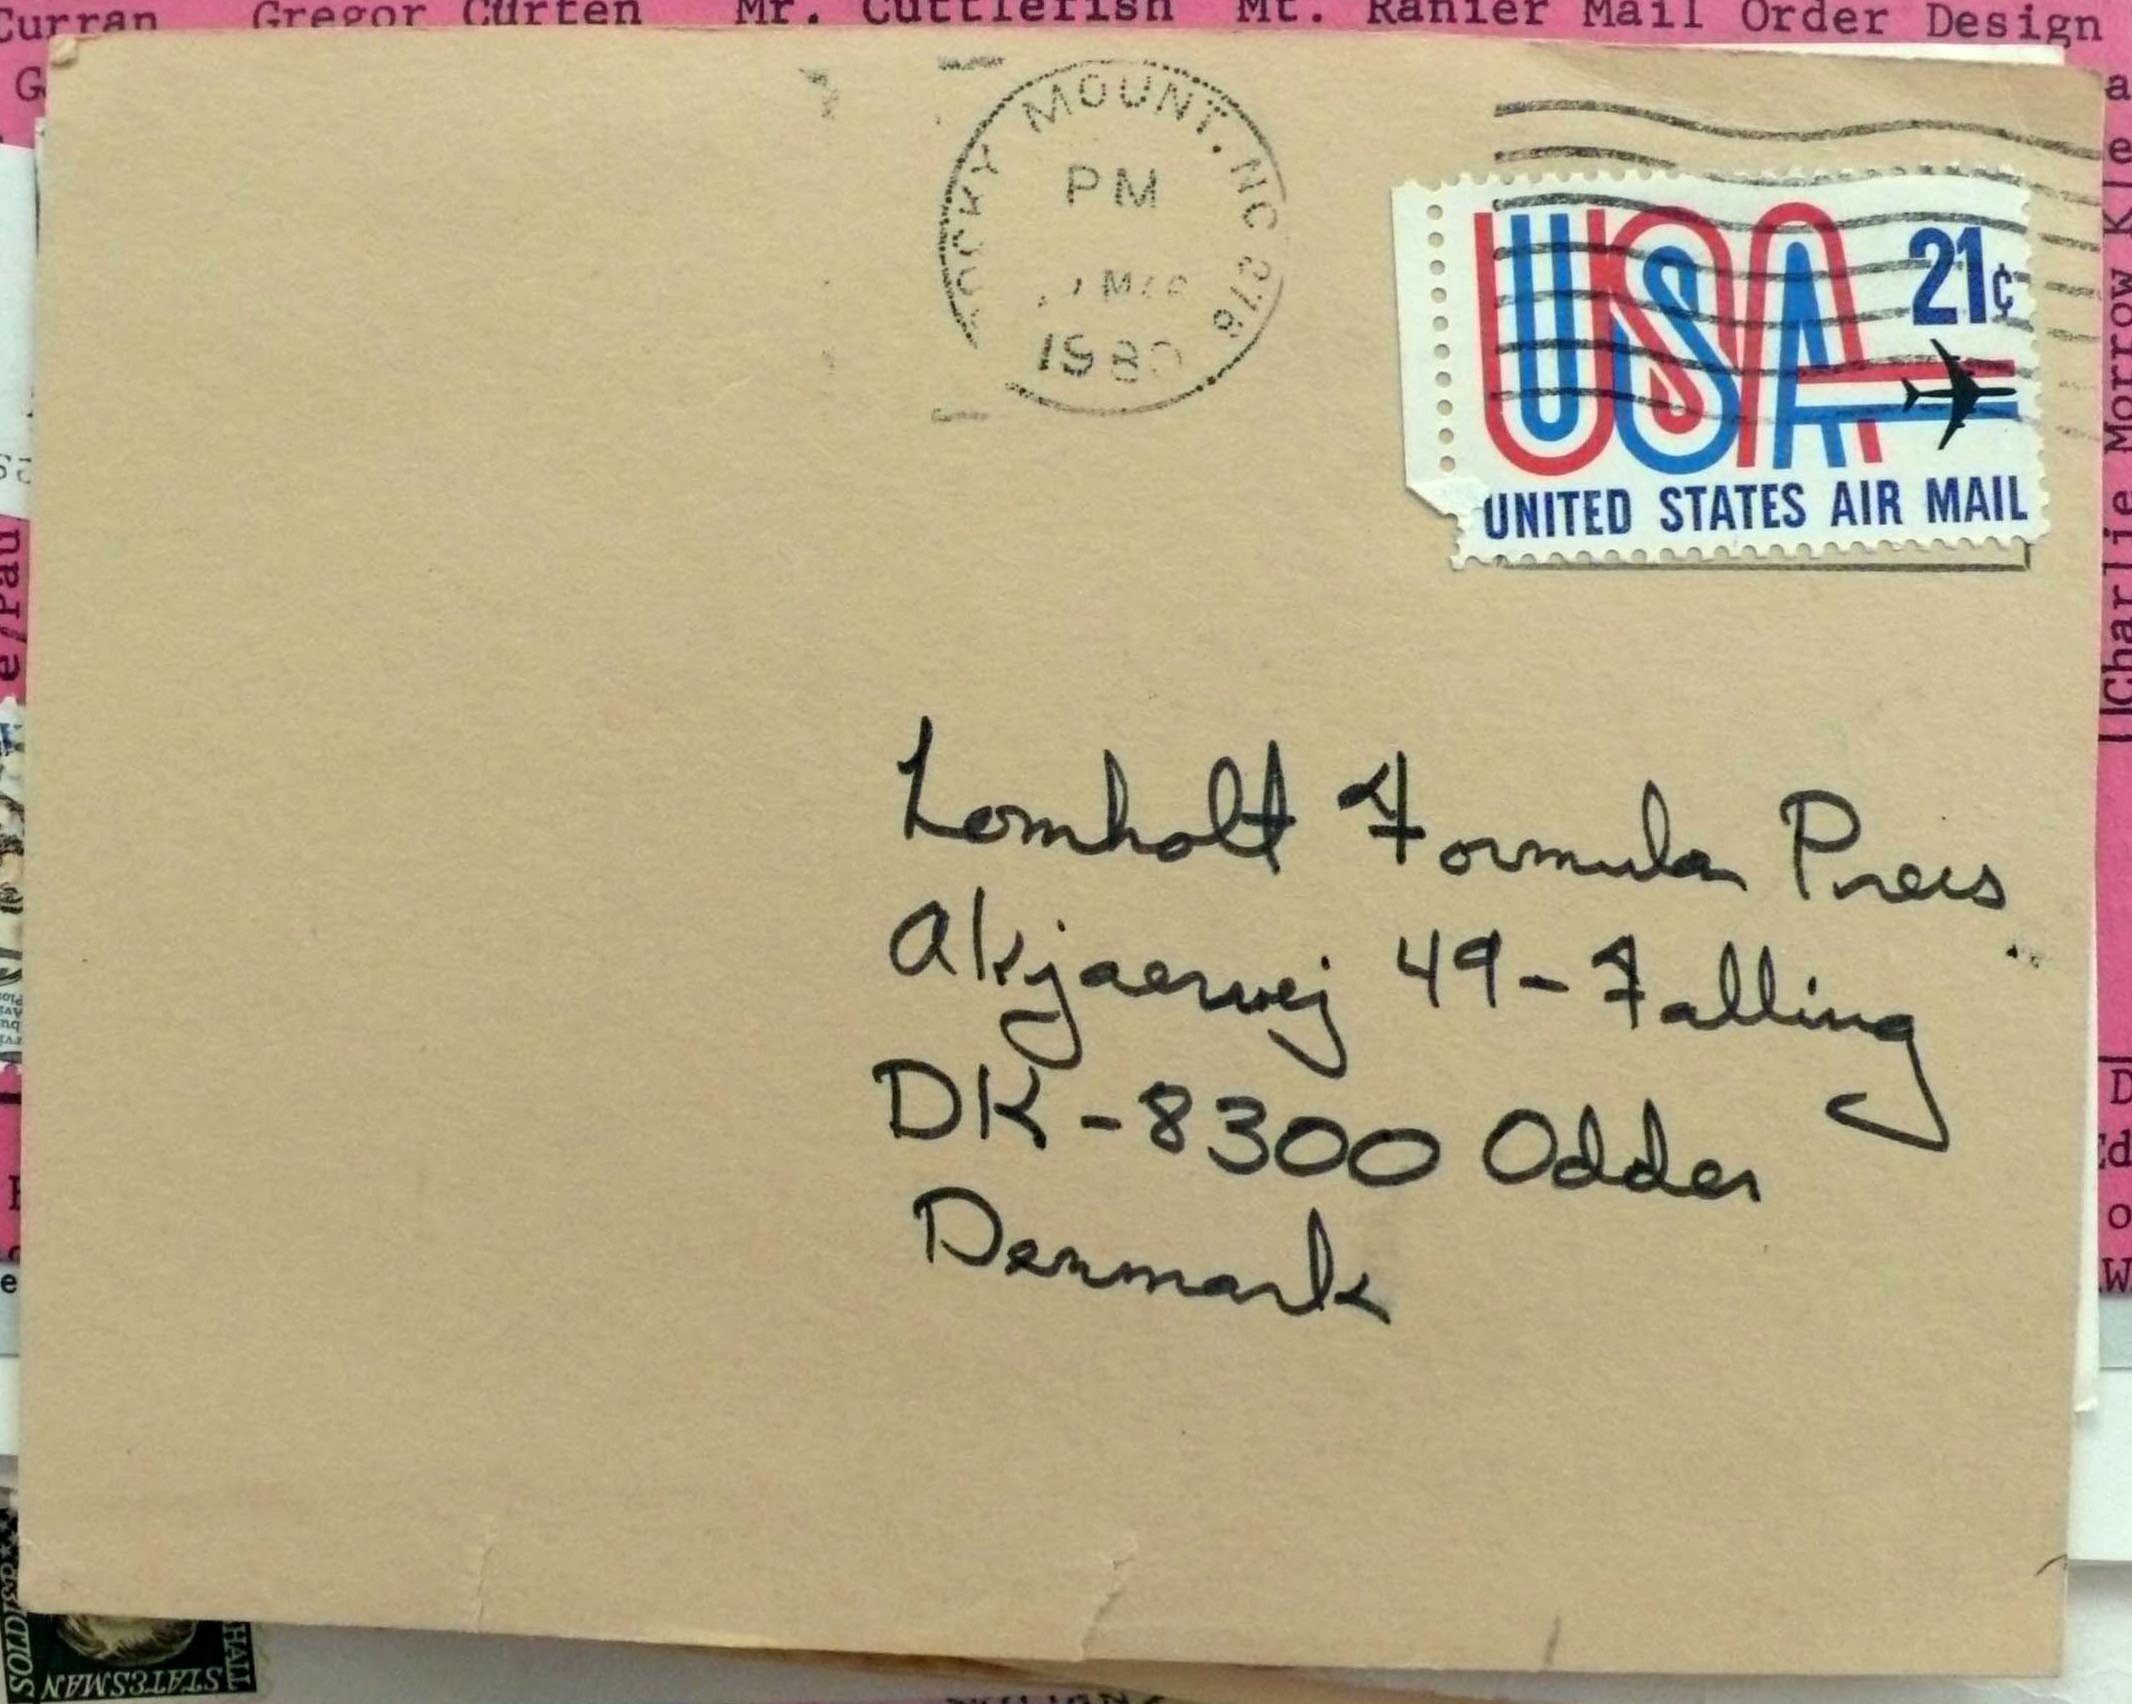 Curran Gregor Curten Mr. Cuttlefish Mt. Ranier Mail Order Design
ROCKY MOUNT, NC 278
PM
1980
USA 21¢
UNITED STATES AIR MAIL
Lomholt Formular Press
Akjaervej 49 - Falling
DK - 8300 Odder
Denmark
Charlie Morrow
e/Pau
HALL
STATESMAN